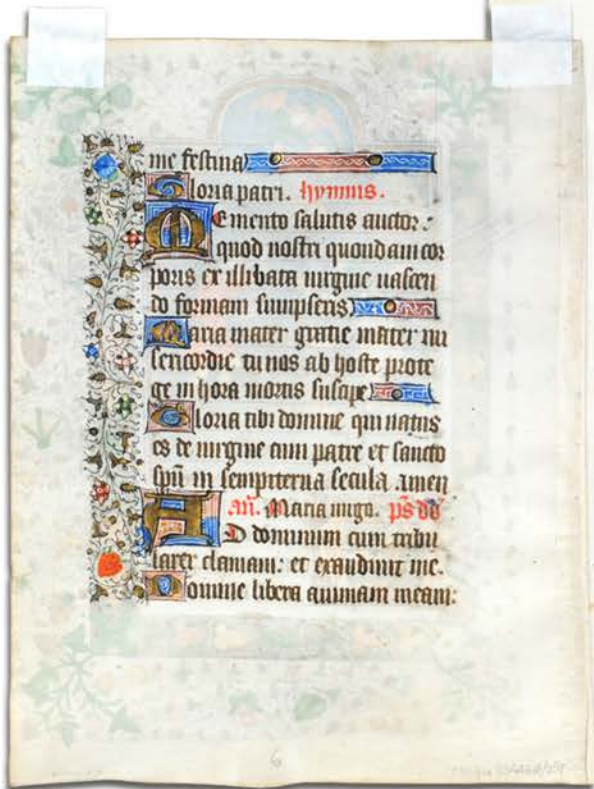 me festina
Gloria patri. hymnus.
Memento salutis auctor:
quod nostri quondam cor
poris ex illibata uirgine nascen
do formam sumpseris
Maria mater gratie mater mi
sericordie tu nos ab hoste prote
ge in hora mortis suscipe
Gloria tibi domine qui natus
es de uirgine cum patre et sancto
spū in sempiterna secula amen
añ. Maria uirgo. ps dd
AD dominum cum tribu
larer clamaui: et exaudiuit me.
Domine libera animam meam:
6